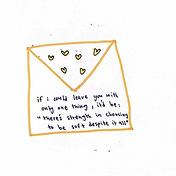 if i could leave you with
only one thing, it'd be:
"there's strength in choosing
to be soft despite it all"